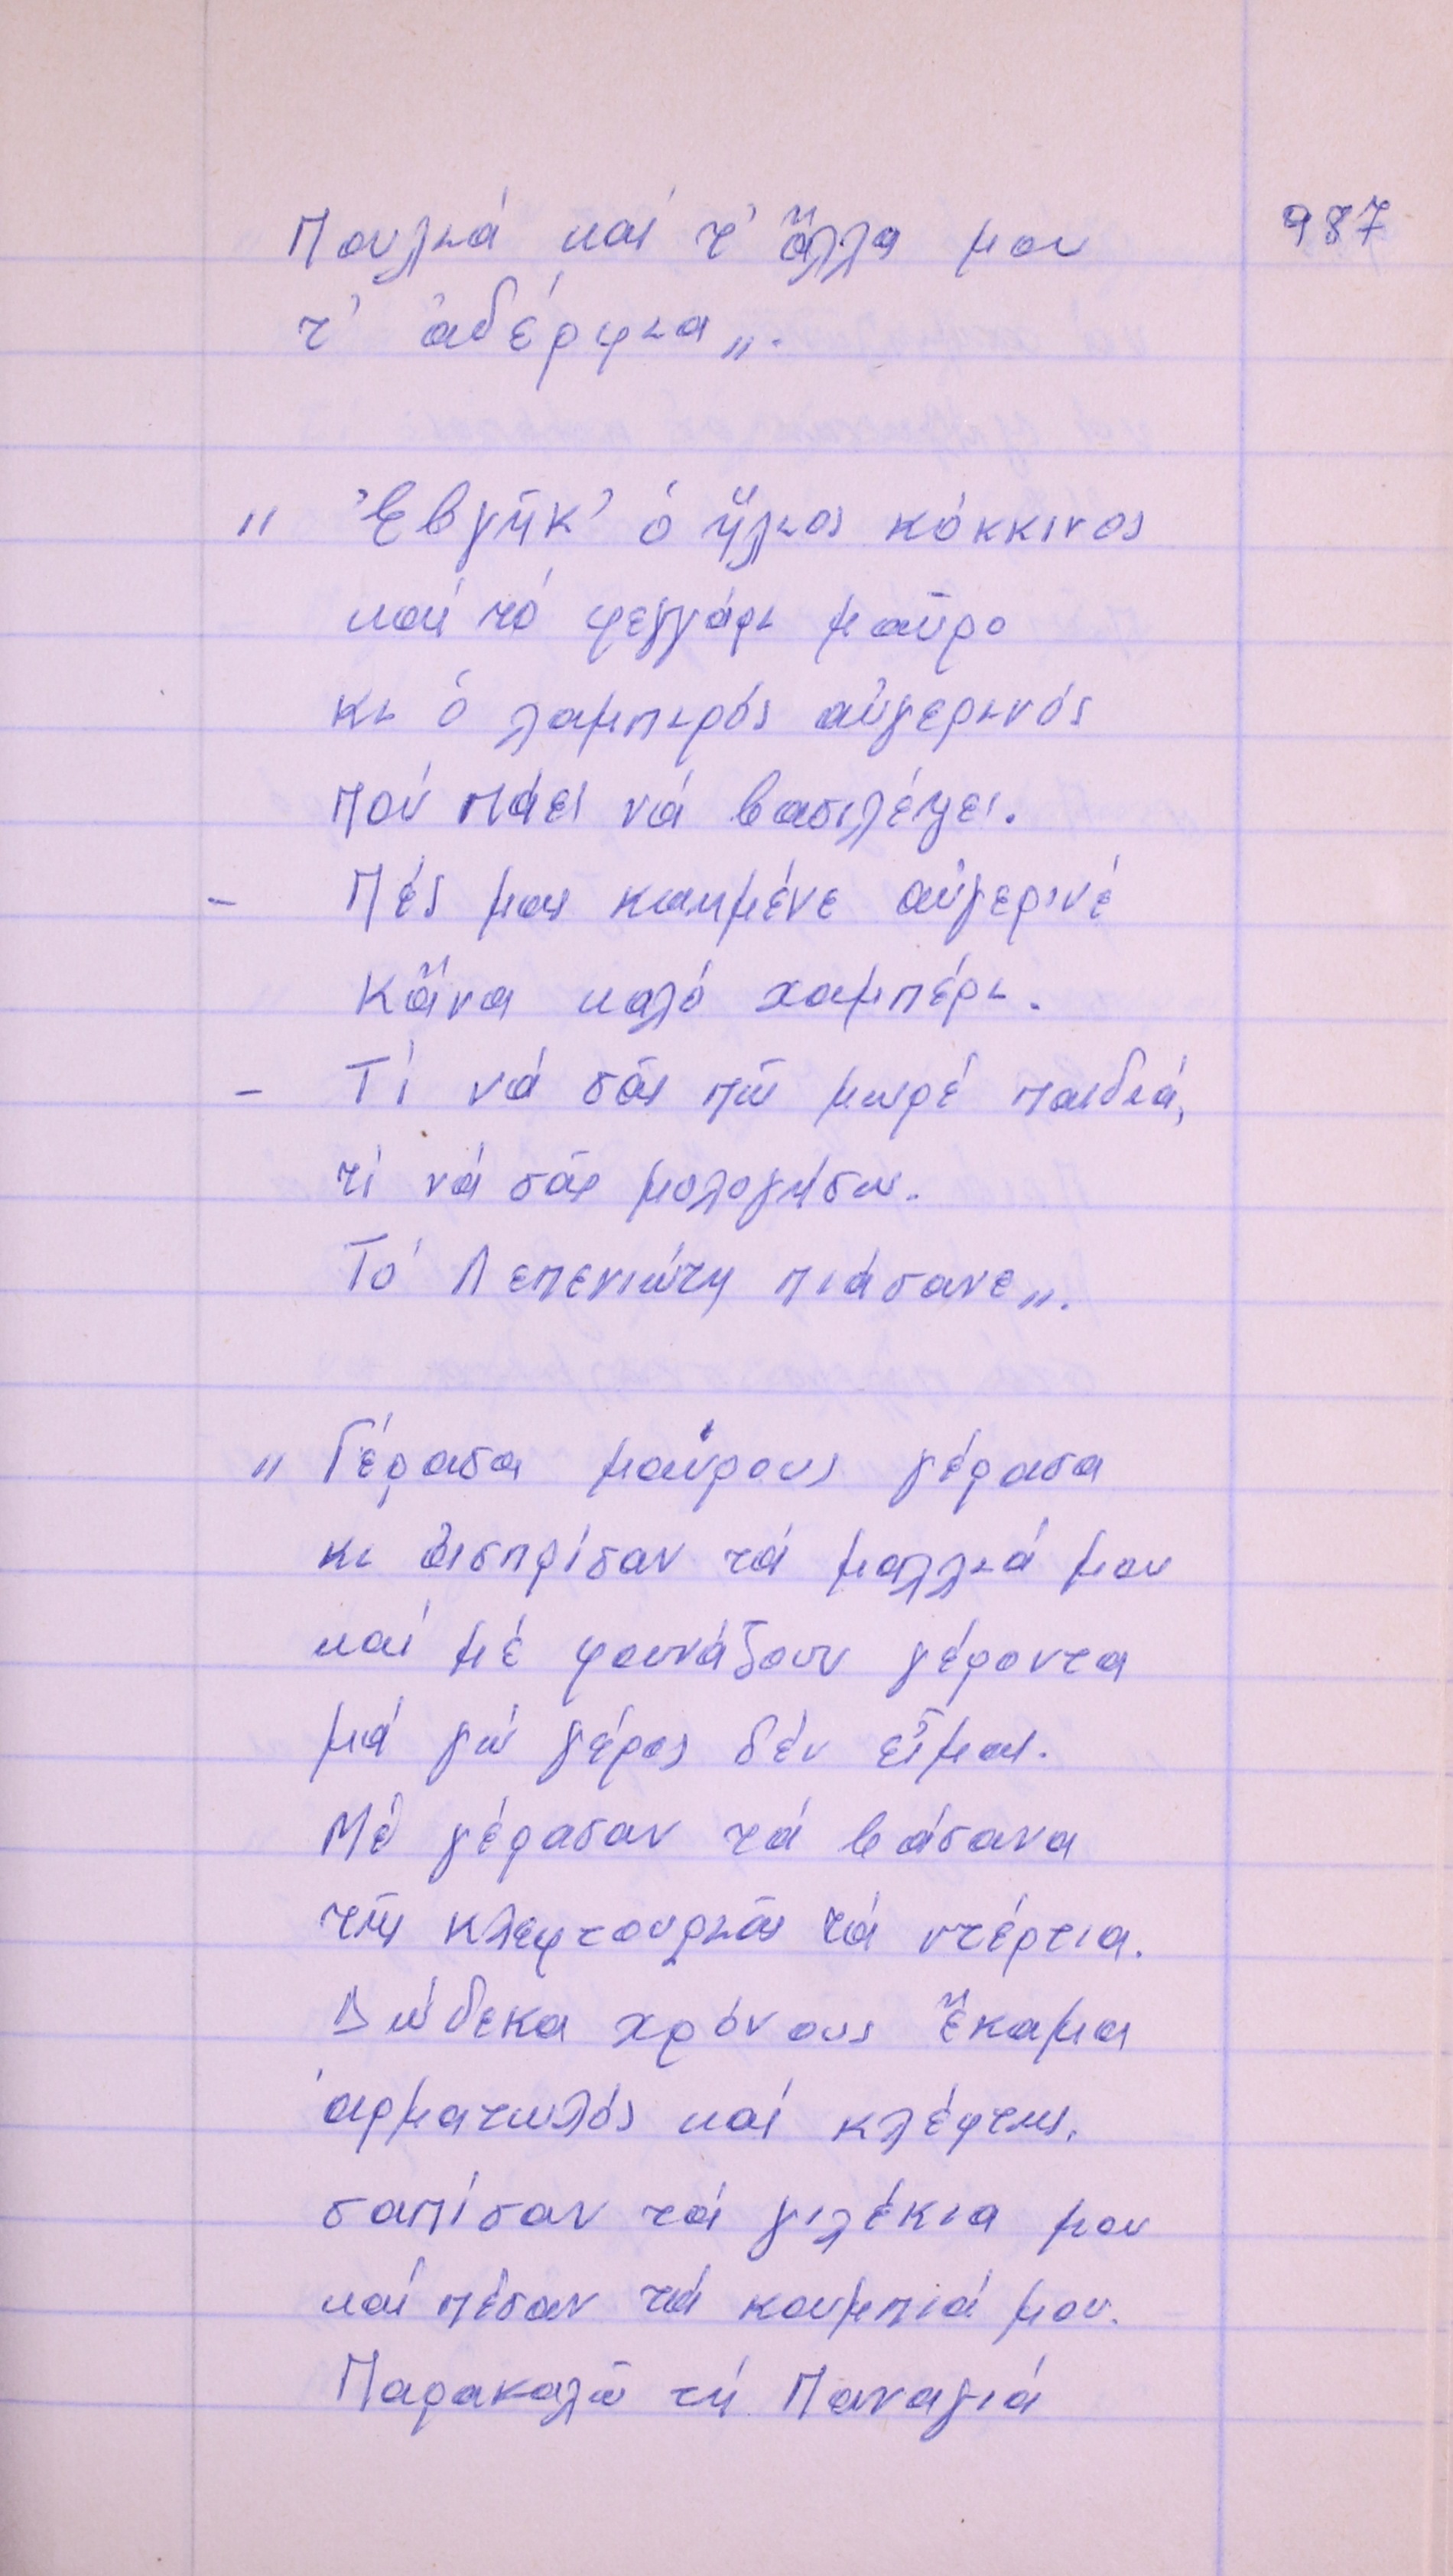 987
Πουλιά καί τ' ἄλλα μου
τ' ἀδέρφια„.
„ Ἐβγῆκ' ὁ ἥλιος κόκκινος
καί τό φεγγάρι μαῦρο
κι ὁ λαμπιρός αὐγερινός
πού πάει νά βασιλέψει.
- Πές μας καημένε αὐγερινέ
κἄνα καλό χαμπέρι.
- Τί νά σᾶς πῶ μωρέ παιδιά,
τί νά σᾶς μολογήσω.
Τό Λεπενιώτη πιάσανε„.
„ Γέρασα μαύρους γέρασα
κι ἀισπρίσαν τά μαλλιά μου
καί μέ φουνάζουν γέροντα
μά γώ γέρος δέν εἶμαι.
Μέ γέρασαν τά βάσανα
τῆς κλεφτουριᾶς τά ντέρτια.
Δώδεκα χρόνους ἔκαμα
ἁρματωλός καί κλέφτης,
σαπίσαν τά γιλέκια μου
καί πέσαν τά κουμπιά μου.
Παρακαλῶ τή Παναγιά